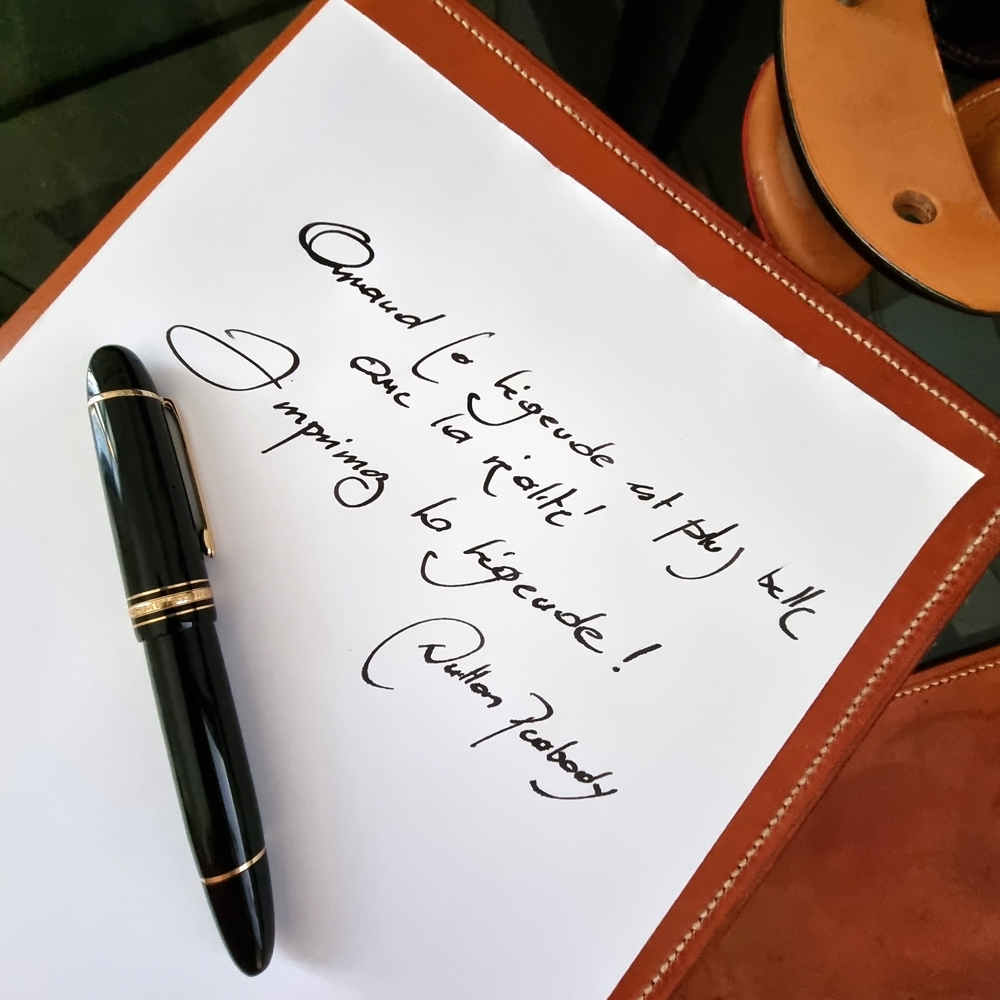 Quand la légende est plus belle
que la réalité
Imprimez la légende !
Dutton Peabody